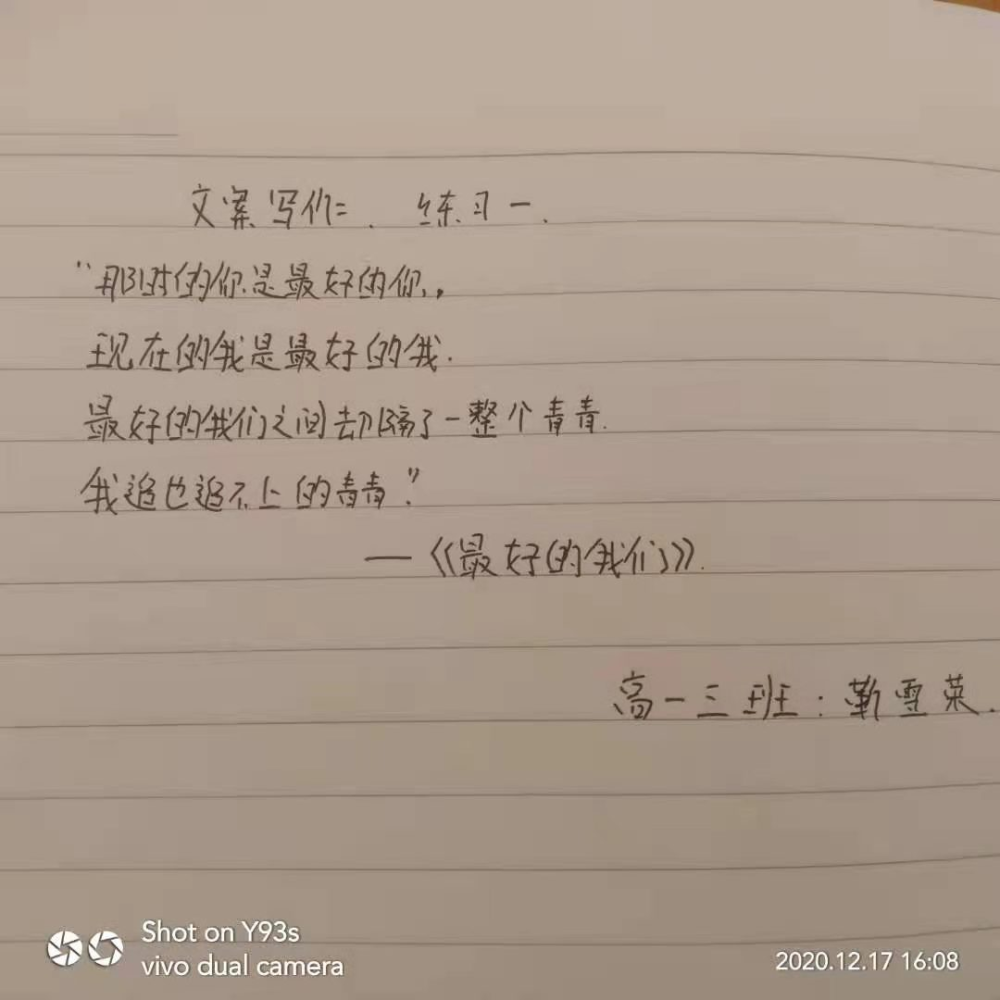 文案写作. 练习一.
“那时的你是最好的你,
现在的我是最好的我.
最好的我们之间却隔了一整个青青.
我追也追不上的青青.”
—《最好的我们》.
高一三班:靳雪莱.
Shot on Y93s
vivo dual camera
2020.12.17 16:08